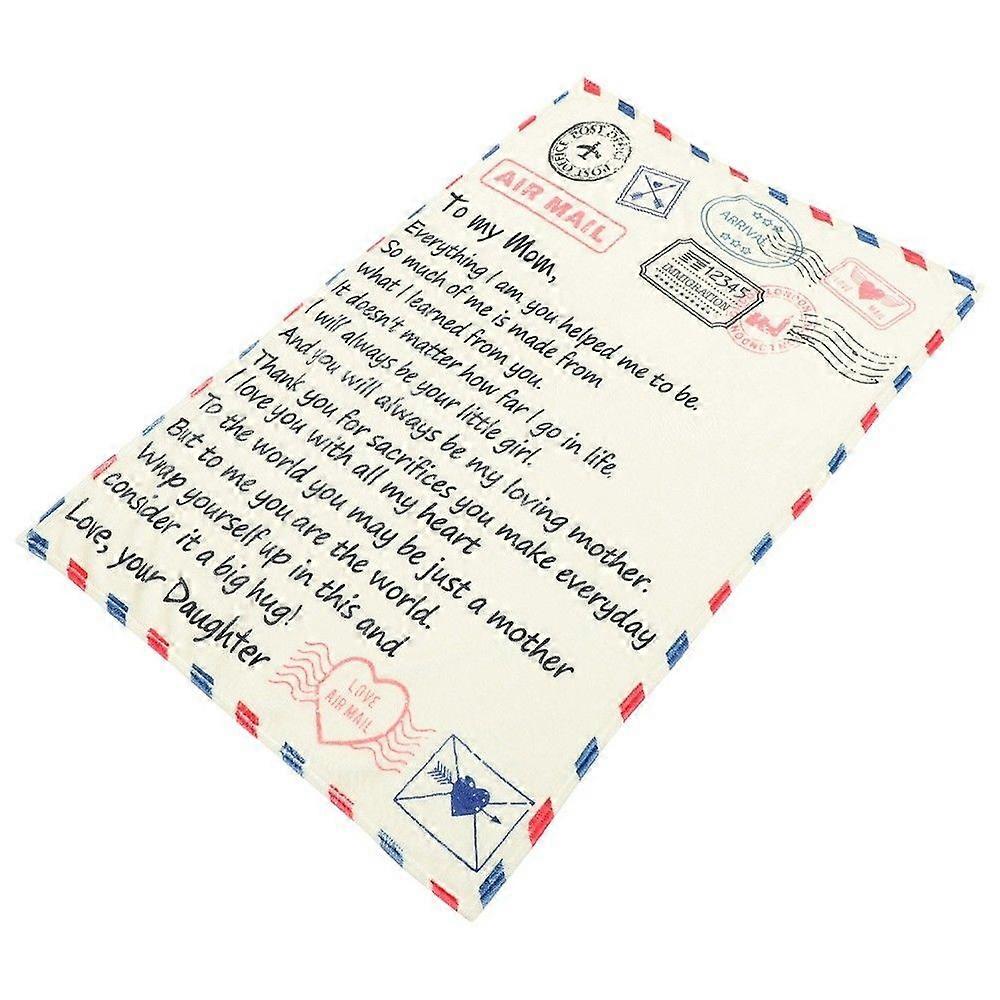 POST OFFICE POST OFFICE
AIR MAIL
ARRIVAL
12345
IMMIGRATION
LOVE
MAIL
LONDON
LONDON
To my Mom,
Everything I am, you helped me to be.
So much of me is made from
what I learned from you.
It doesn't matter how far I go in life.
I will always be your little girl.
And you will always be my loving mother.
Thank you for sacrifices you make everyday
I love you with all my heart
To the world you may be just a mother
But to me you are the world.
Wrap yourself up in this and
consider it a big hug!
Love, your Daughter
LOVE
AIR MAIL